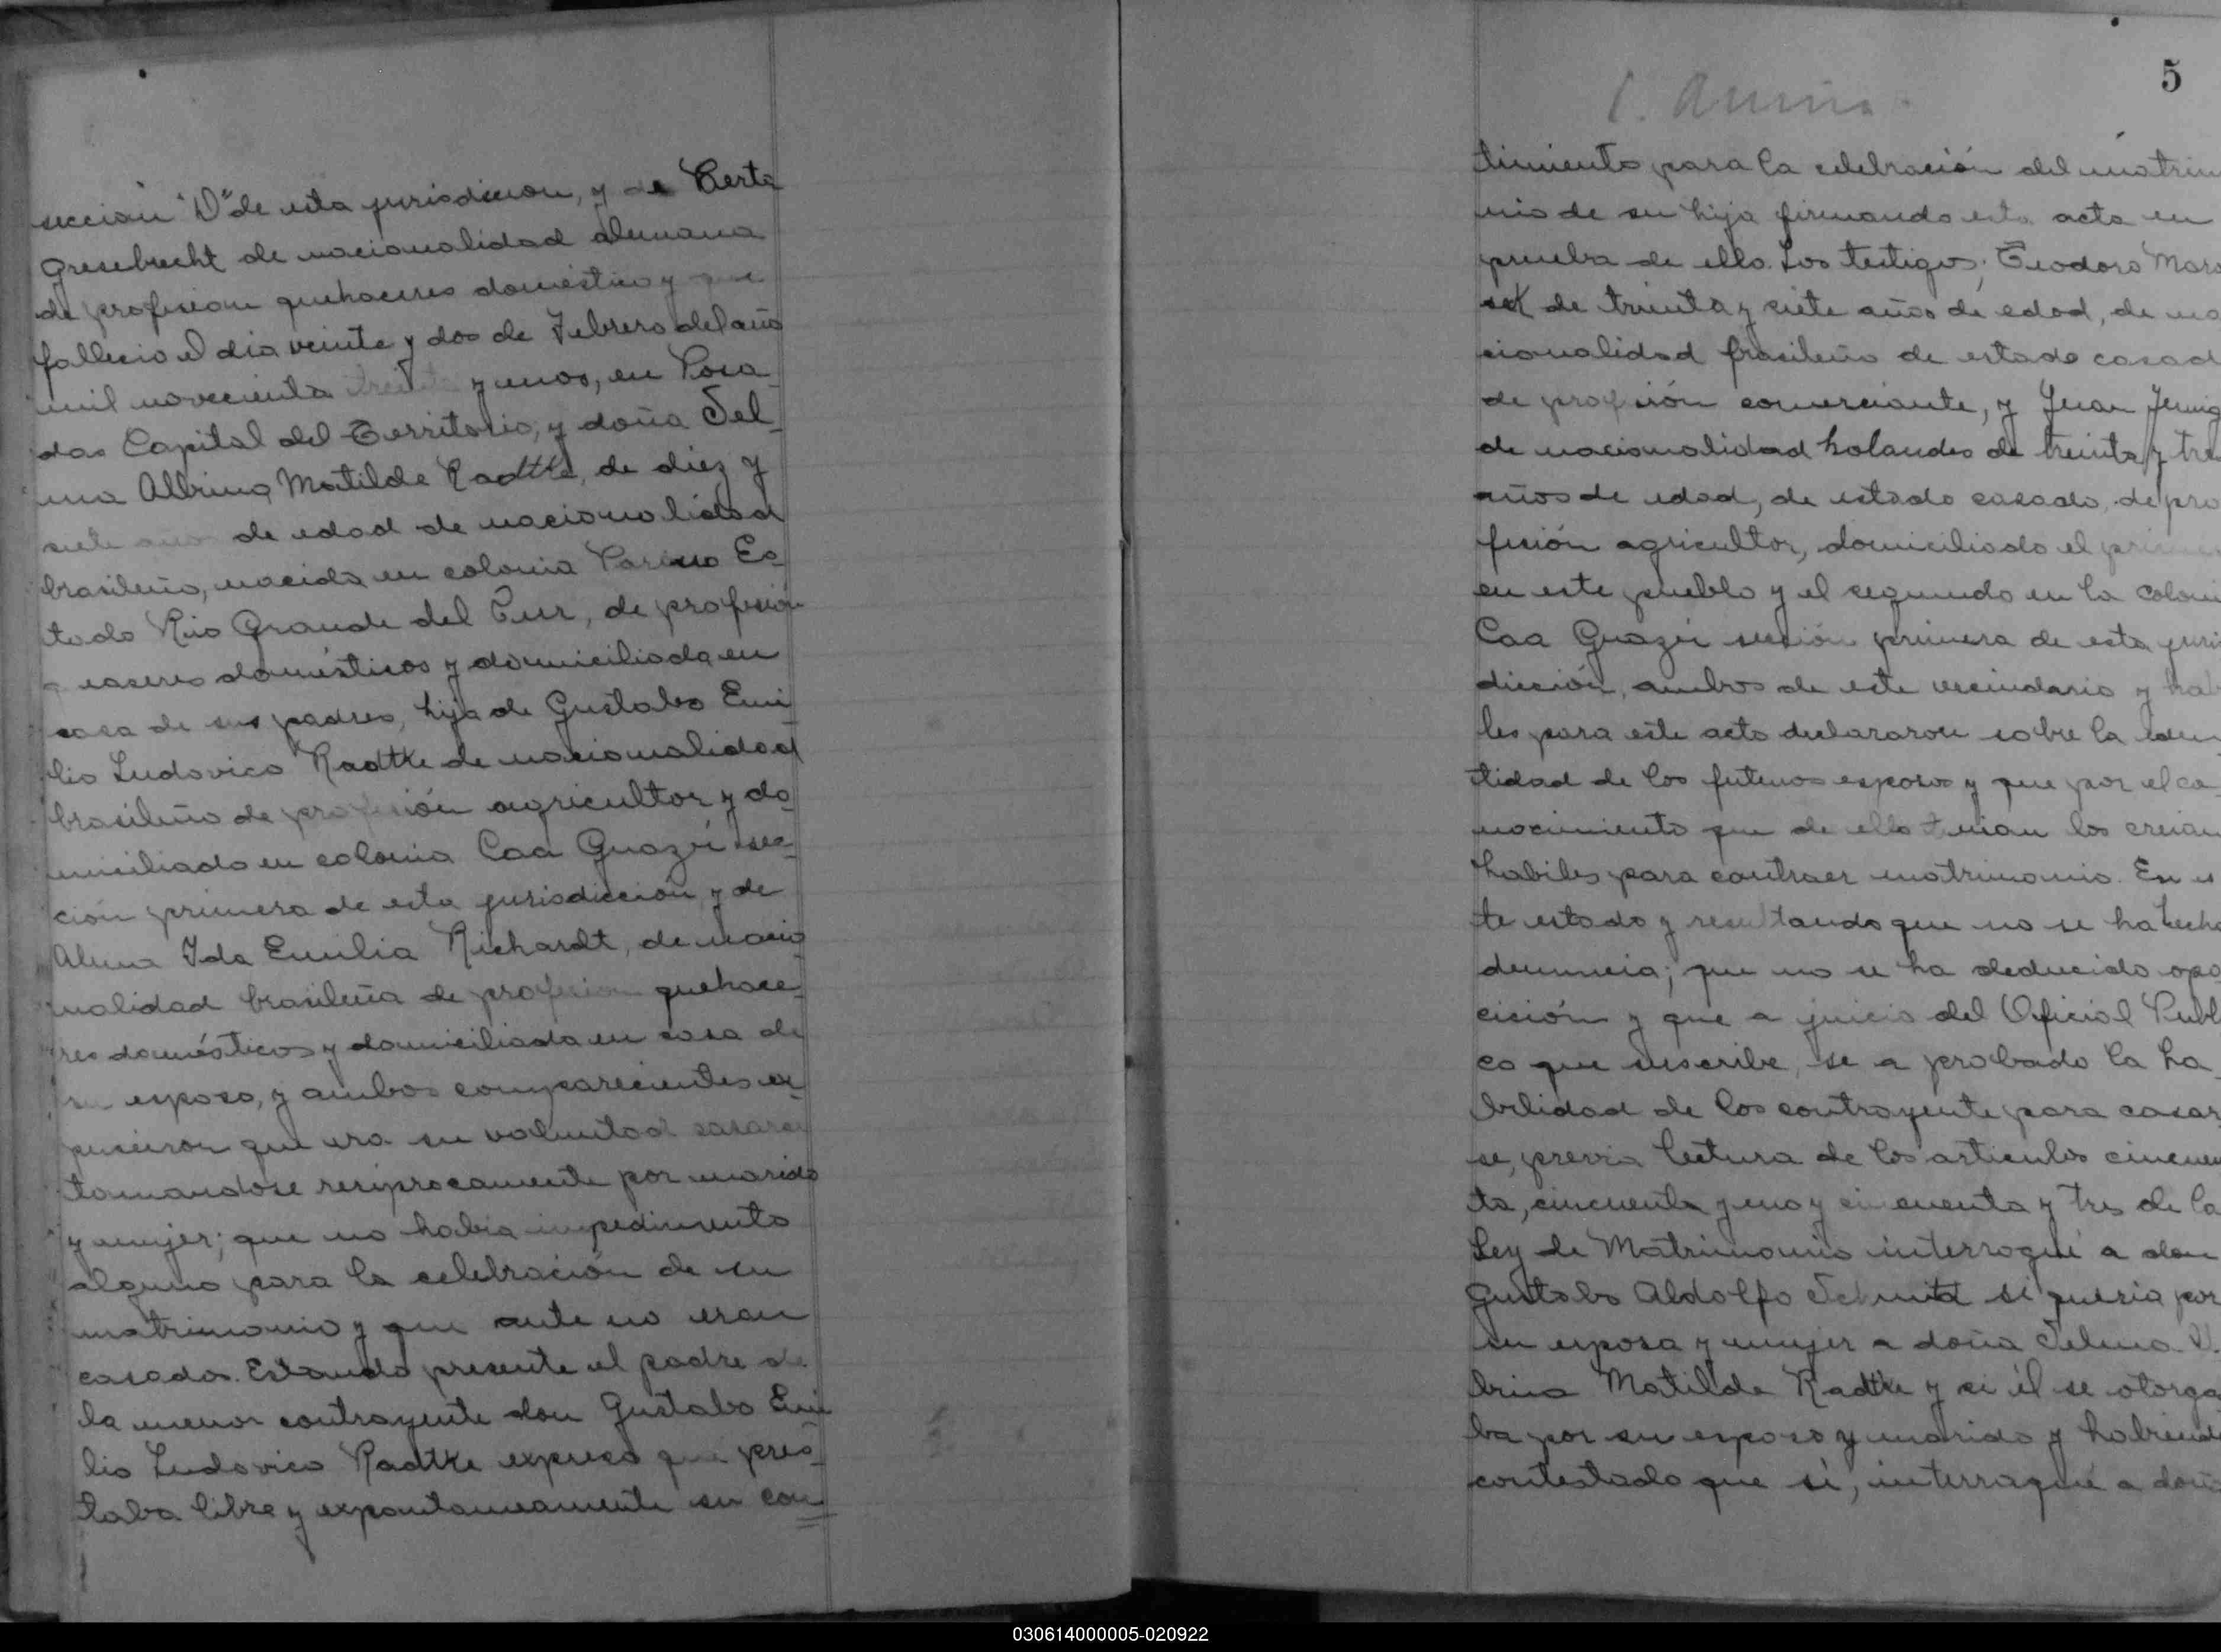 seccion "D" de esta jurisdiccion, y de Berta
Gresebrecht de nacionalidad alemana
de profesion quehaceres domestico y que
fallecio el dia veinte y dos de Febrero del año
mil novecienta treinta y unos, en Posa
das Capital del Territorio, y doña Sel
ma Albrina Matilde Radtke, de diez y
siete años de edad de nacionalidad
brasileño, nacida en colonia Es
tado Rio Grande del Sur, de profesión
domésticos y domiciliada en
casa de sus padres, hija de Gustabo Emi
lio Ludovico Radtke de nacionalidad
brasileño de profesión agricultor y do
miciliado en colonia Caa Guazú sec
ción primera de esta jurisdicción y de
Ida Emilia Richardt, de nacio
nalidad brasileña de profesion quehace
res domésticos y domiciliada en casa de
su esposo, y ambos comparecientes ex
pusieron que era su voluntad casarce
tomandose resiprocamente por marido
y mujer; que no habia impedimento
alguno para la celebración de su
matrimonio y que ante no eran
casados. Estando presente el padre de
la menor contrayente don Gustabo Emi
lio Ludovico Radtke expreso que pres
taba libre y expontaneamente su con
5
timiento para la celebración del matrim
nio de su hija firmando esta acta en
prueba de ello. Los testigos: Teodoro Maro
sek de treinta y siete años de edad, de na
cionalidad brasileño de estado casad
de profesión comerciante, y Juan
de nacionalidad holandes de treinta y tre
años de edad, de estado casado, de pro
fesión agricultor, domiciliado el primero
en este pueblo y el segundo en la coloni
Caa Guazú sección primera de esta juri
dicción, ambos de este vecindario y hab
les para este acto declararon sobre la iden
tidad de los futuros esposos y que por el co
nocimiento que de ellos tenian los creian
habiles para contraer matrimonio. En es
te estado y resultando que no se ha hecho
denuncia; que no se ha deducido opo
cisión y que a juicio del Oficial Publ
co que suscribe, se a probado la ha
bilidad de los contrayente para casar
se, previa lectura de los articulos cincuen
ta, cincuenta y uno y cincuenta y tres de la
Ley de Matrimonio interrogué a don
Gustabo Aldolfo Schmidt si queria por
su esposa y mujer a doña Selma
brina Matilde Radtke y si él se otorga
ba por su esposo y marido y habiend
contestado que si, interrogué a doña
030614000005-020922